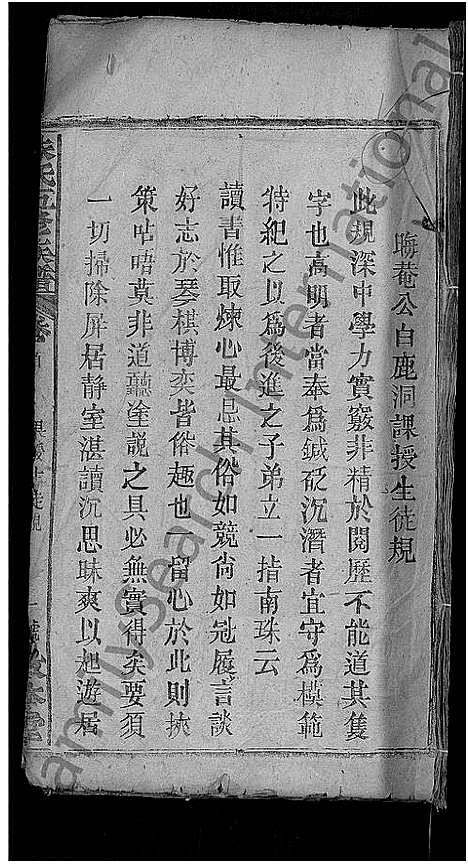 晦菴公白鹿洞課授生徒規
此規深中學力實竅非精於閱歷不能道其隻
字也高明者當奉爲鍼砭沉潛者宜守爲模範
特紀之以爲後進之子弟立一指南珠云
讀書惟取煉心最忌其俗如競尙如冠履言談
好志於琴棋博奕皆俗趣也一留心於此則挾
策呫唔莫非道聽塗說之具必無實得矣要須
一切掃除屏居静室湛讀沉思昧爽以起遊居
朱氏五修族譜
FamilySearch International